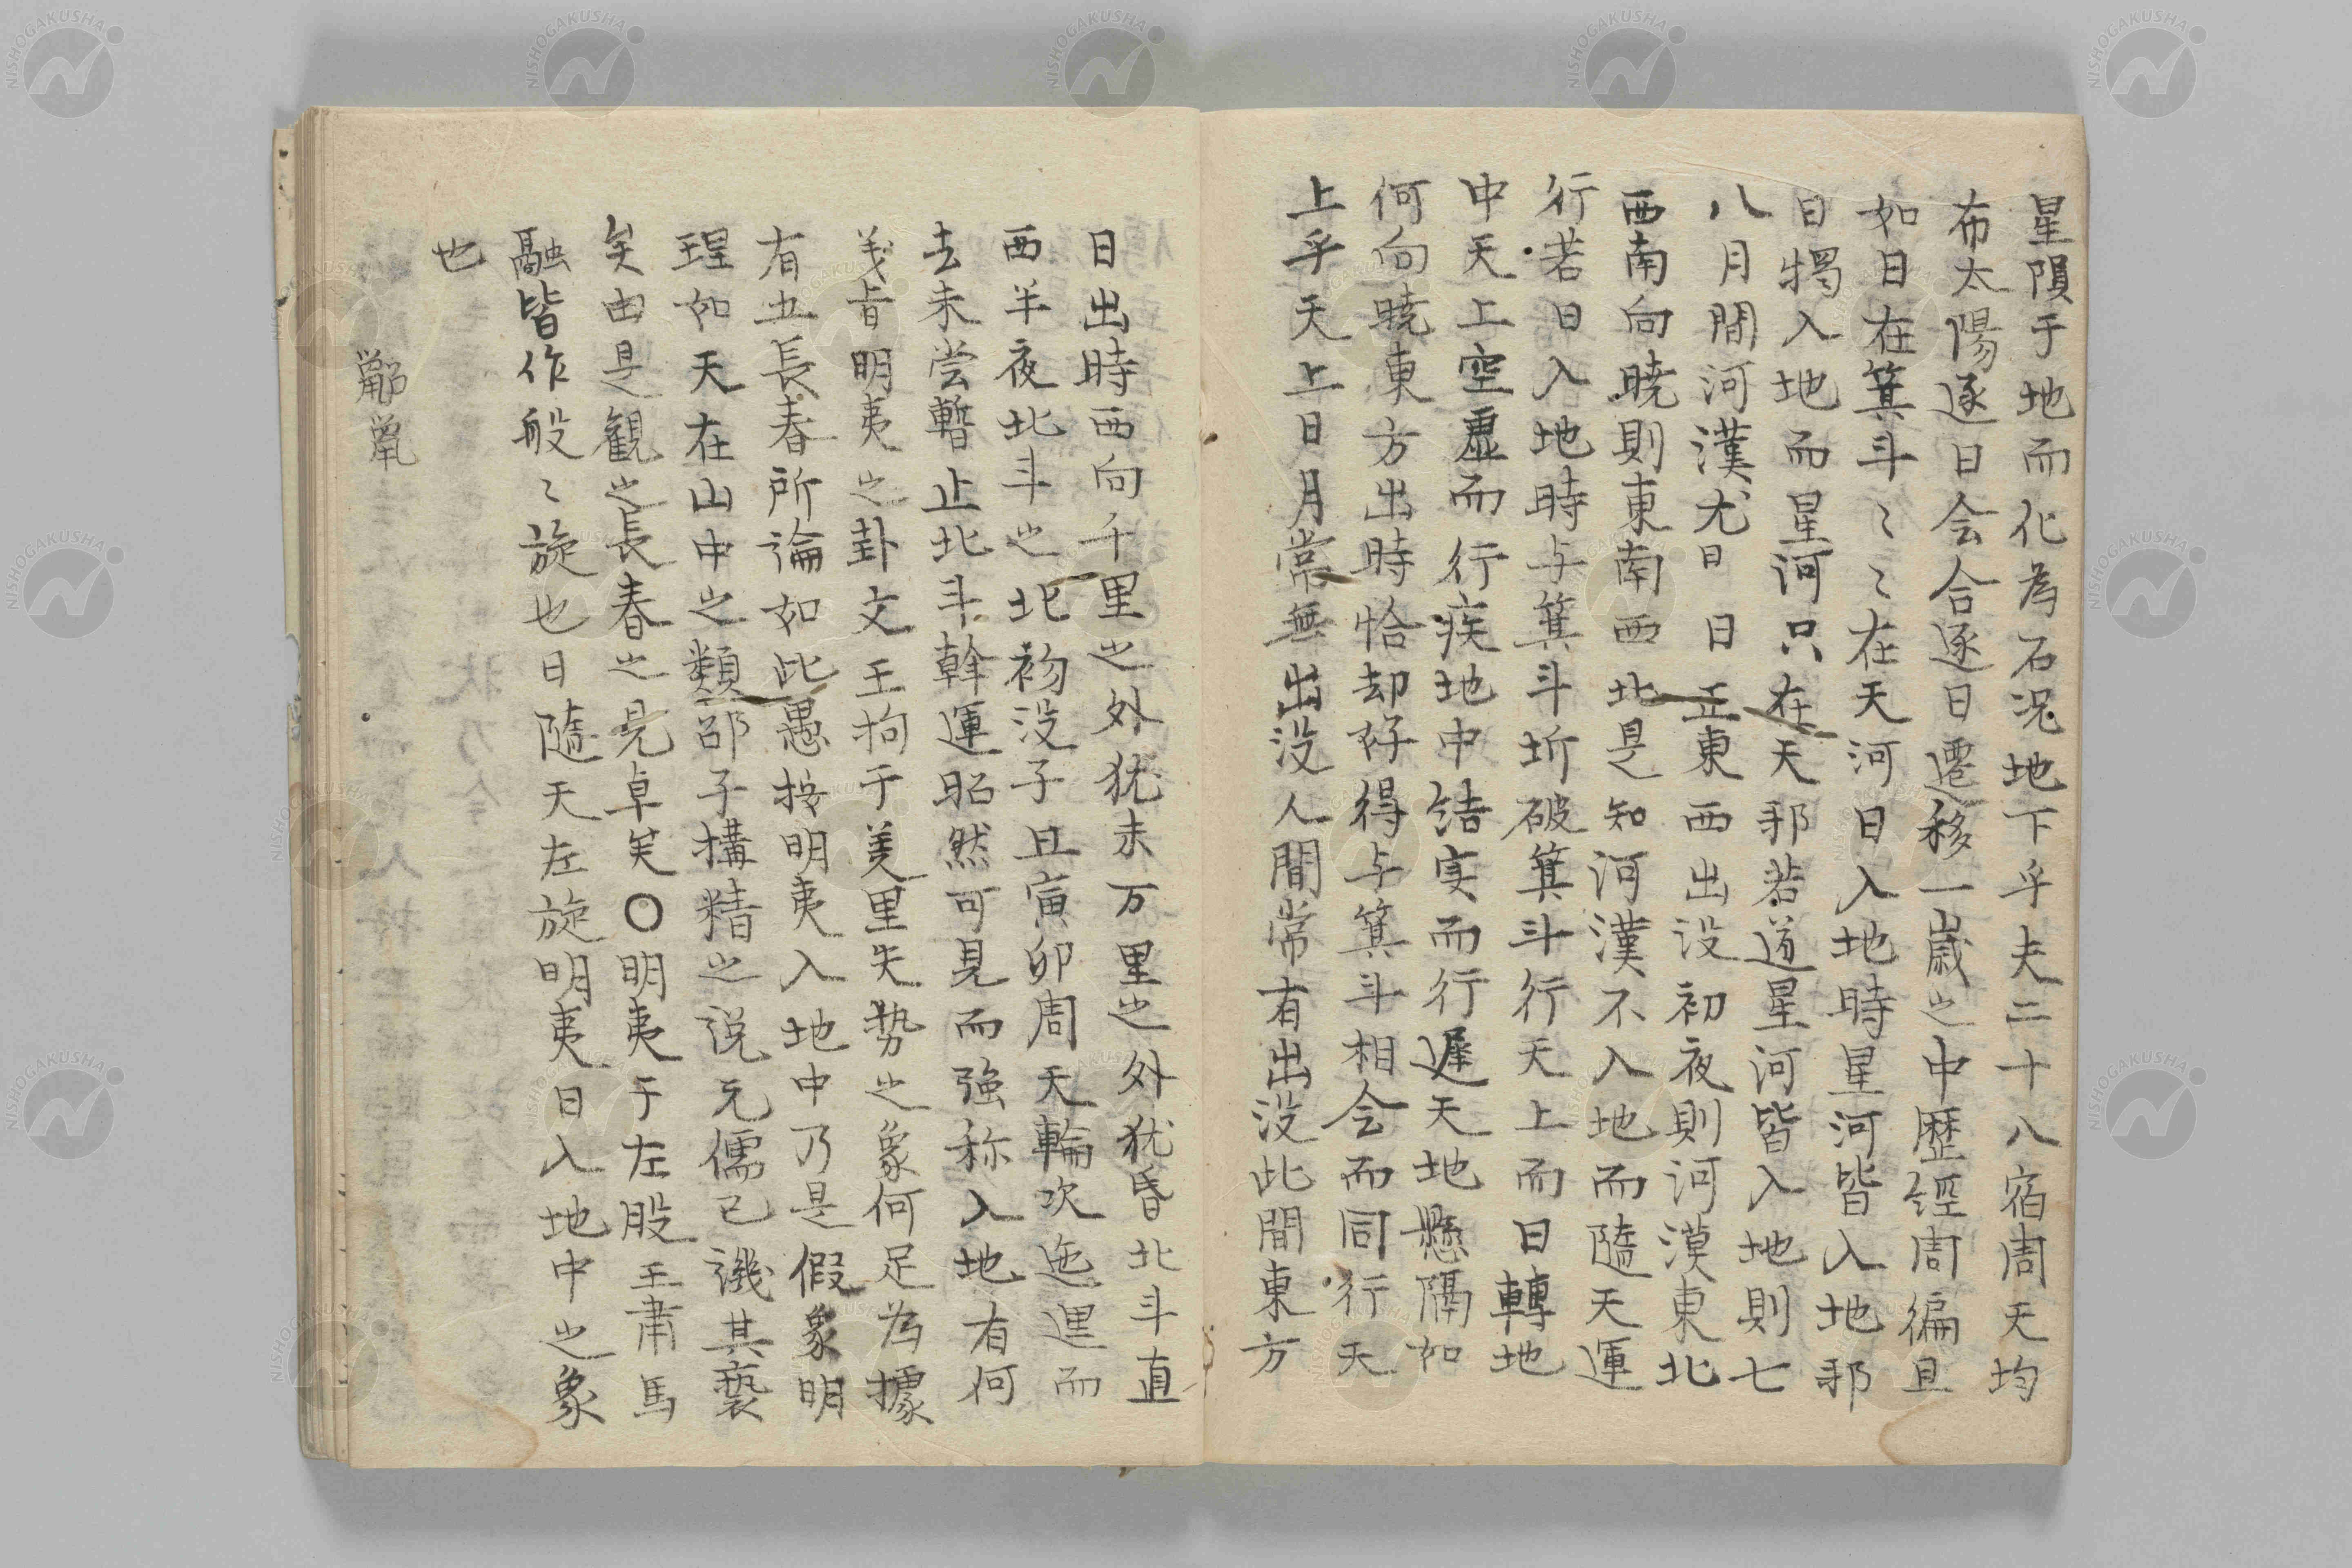 星隕于地而化為石况地下乎夫二十八宿周天均
布太陽逐日会合逐日遷移一歳之中歷經周徧且
如日在箕斗〻〻在天河日入地時星河皆入地邪
日獨入地而星河只在天邪若道星河皆入地則七
八月間河漢尤日日正東西出没初夜則河漠東北
西南向曉則東南西北是知河漢不入地而隨天運
行若日入地時与箕斗圻破箕斗行天上而日轉地
中天上空虚而行疾地中结実而行遲天地懸隔如
何向曉東方出時恰却好得与箕斗相会而同行天
上乎天上日月常無出没人間常有出没此間東方
日出時西向千里之外犹未万里之外犹昏北斗直
西半夜北斗之北初没子丑寅卯周天輪次迤逦而
去未尝暫止北斗斡運昭然可見而强称入地有何
义旨明夷之卦文王拘于羑里失势之象何足为據
有丘長春所論如此愚按明夷入地中乃是假象明
理如天在山中之類邵子構精之说元儒已譏其褻
矣由是観之長春之見卓矣〇明夷于左股王肃馬
融皆作般〻旋也日隨天左旋明夷日入地中之象
也
NISHOGAKUSHA